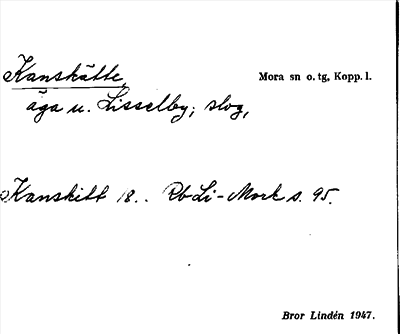 Kanskätte Mora sn o. tg, Kopp. l.
äga u. Lisselby; slog,
Kanskitt 18.. Rb Li-Mork s. 95.
Bror Lindén 1947.